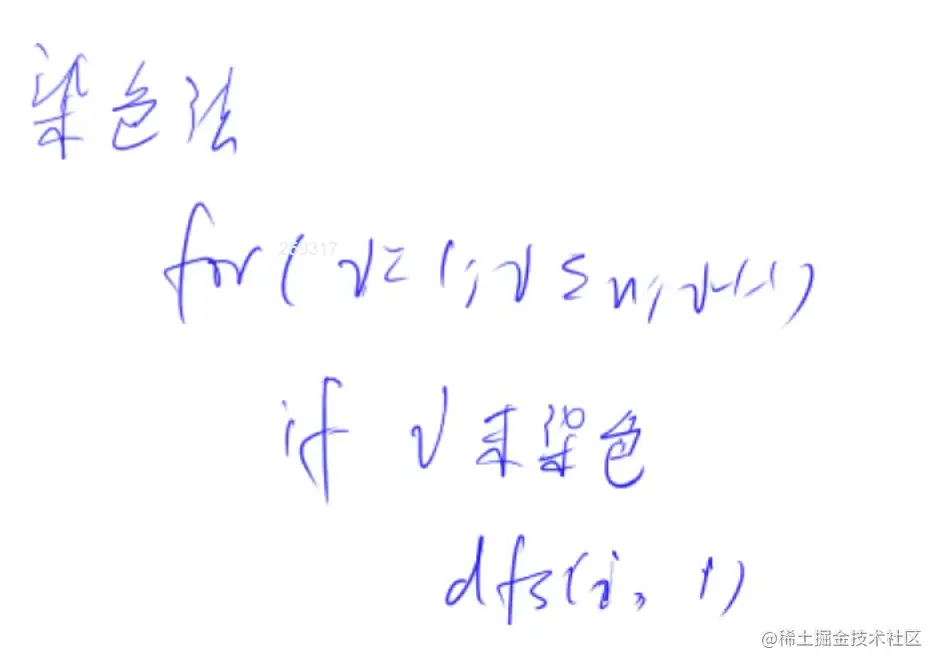 染色法
for(v=1;v≤n;v++)
if v未染色
dfs(i,1)
@稀土掘金技术社区